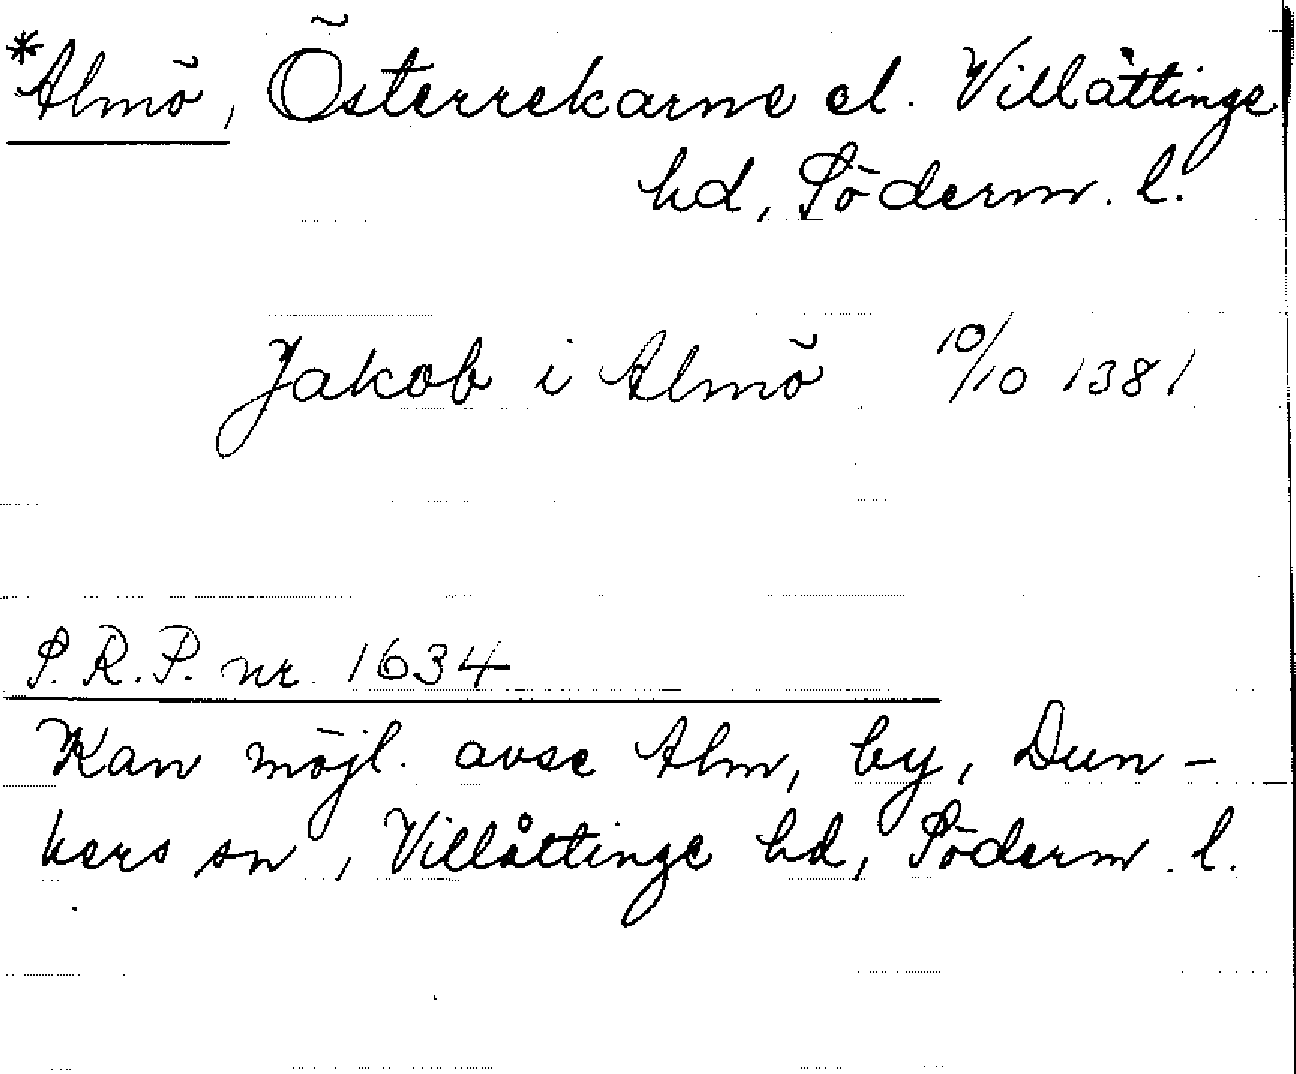 *Almö, Österrekarne el. Villåttinge
hd, Söderm. l.
Jakob i Almö 10/10 1381
S.R.P. nr. 1634
Kan möjl. avse Alm, by, Dun-
kers sn, Villåttinge hd, Söderm. l.